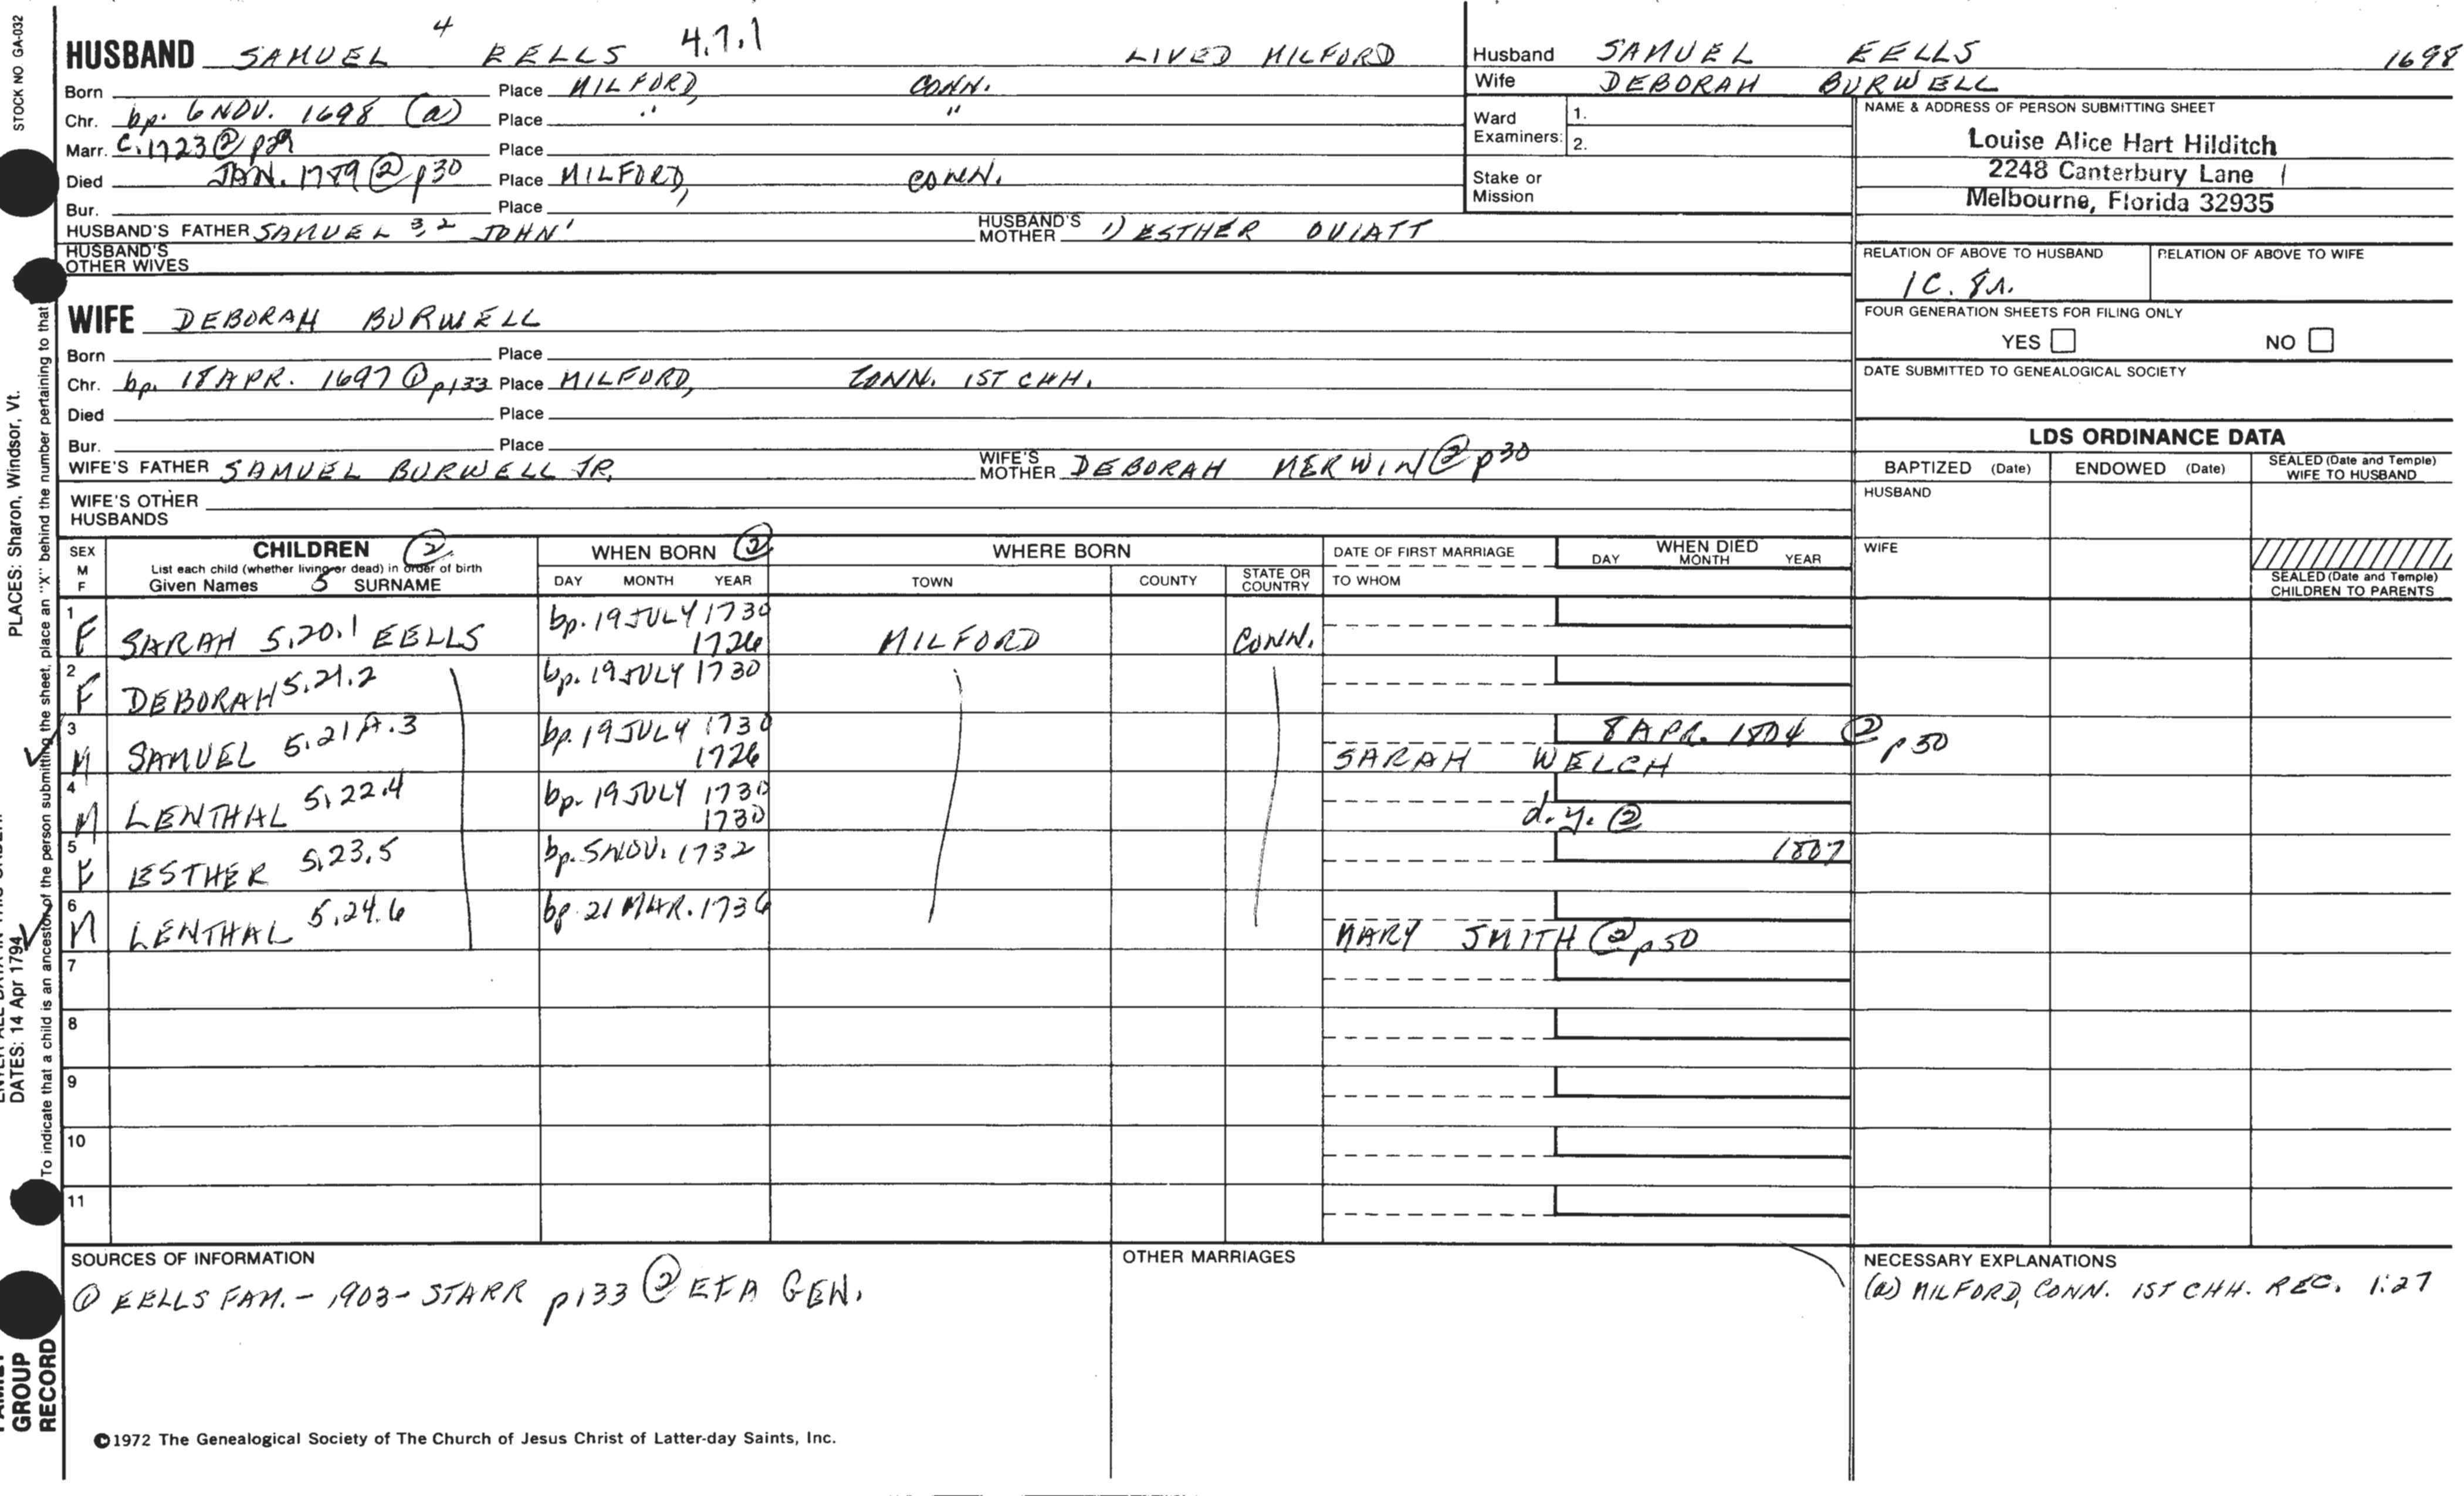 STOCK NO GA-032
HUSBAND SAMUEL 4 EELLS 4.7.1 LIVED MILFORD
Born Place MILFORD, CONN.
Chr. bp. 6 NOV. 1698 (a) Place " "
Marr. C. 1723 ② p29 Place
Died JAN. 1789 ② p30 Place MILFORD, CONN.
Bur. Place
HUSBAND'S FATHER SAMUEL 3,2 JOHN 1 HUSBAND'S MOTHER 1) ESTHER OVIATT
HUSBAND'S OTHER WIVES
WIFE DEBORAH BURWELL
Born Place
Chr. bp. 18 APR. 1697 ① p133 Place MILFORD, CONN. 1ST CHH.
Died Place
Bur. Place
WIFE'S FATHER SAMUEL BURWELL JR. WIFE'S MOTHER DEBORAH MERWIN ② p30
WIFE'S OTHER HUSBANDS
Husband SAMUEL EELLS 1698
Wife DEBORAH BURWELL
Ward Examiners: 1. 2.
Stake or Mission
NAME & ADDRESS OF PERSON SUBMITTING SHEET
Louise Alice Hart Hilditch
2248 Canterbury Lane
Melbourne, Florida 32935
RELATION OF ABOVE TO HUSBAND RELATION OF ABOVE TO WIFE
1C. 8r.
FOUR GENERATION SHEETS FOR FILING ONLY
YES NO
DATE SUBMITTED TO GENEALOGICAL SOCIETY
LDS ORDINANCE DATA
BAPTIZED (Date) ENDOWED (Date) SEALED (Date and Temple) WIFE TO HUSBAND
HUSBAND
WIFE
SEALED (Date and Temple) CHILDREN TO PARENTS
SEX M F CHILDREN ② WHEN BORN ② WHERE BORN DATE OF FIRST MARRIAGE WHEN DIED
List each child (whether living or dead) in order of birth DAY MONTH YEAR
Given Names 5 SURNAME DAY MONTH YEAR TOWN COUNTY STATE OR COUNTRY TO WHOM
1 bp. 19 JULY 1730
F SARAH 5.20.1 EELLS 1726 MILFORD CONN.
2 bp. 19 JULY 1730
F DEBORAH 5.21.2
3 bp. 19 JULY 1730 8 APR. 1804 ② p50
M SAMUEL 5.21A.3 1726 SARAH WELCH
4 bp. 19 JULY 1730
M LENTHAL 5.22.4 1730 d.y. ②
5 bp. 5 NOV. 1732 1807
F ESTHER 5.23.5
6 bp. 21 MAR. 1736
M LENTHAL 5.24.6 MARY SMITH ② p50
7
8
9
10
11
SOURCES OF INFORMATION OTHER MARRIAGES NECESSARY EXPLANATIONS
① EELLS FAM. - 1903 - STARR p133 ② EFA GEN. (a) MILFORD, CONN. 1ST CHH. REC. 1:27
©1972 The Genealogical Society of The Church of Jesus Christ of Latter-day Saints, Inc.
PLACES: Sharon, Windsor, Vt.
DATES: 14 Apr 1794
To indicate that a child is an ancestor of the person submitting the sheet, place an "X" behind the number pertaining to that
GROUP
RECORD